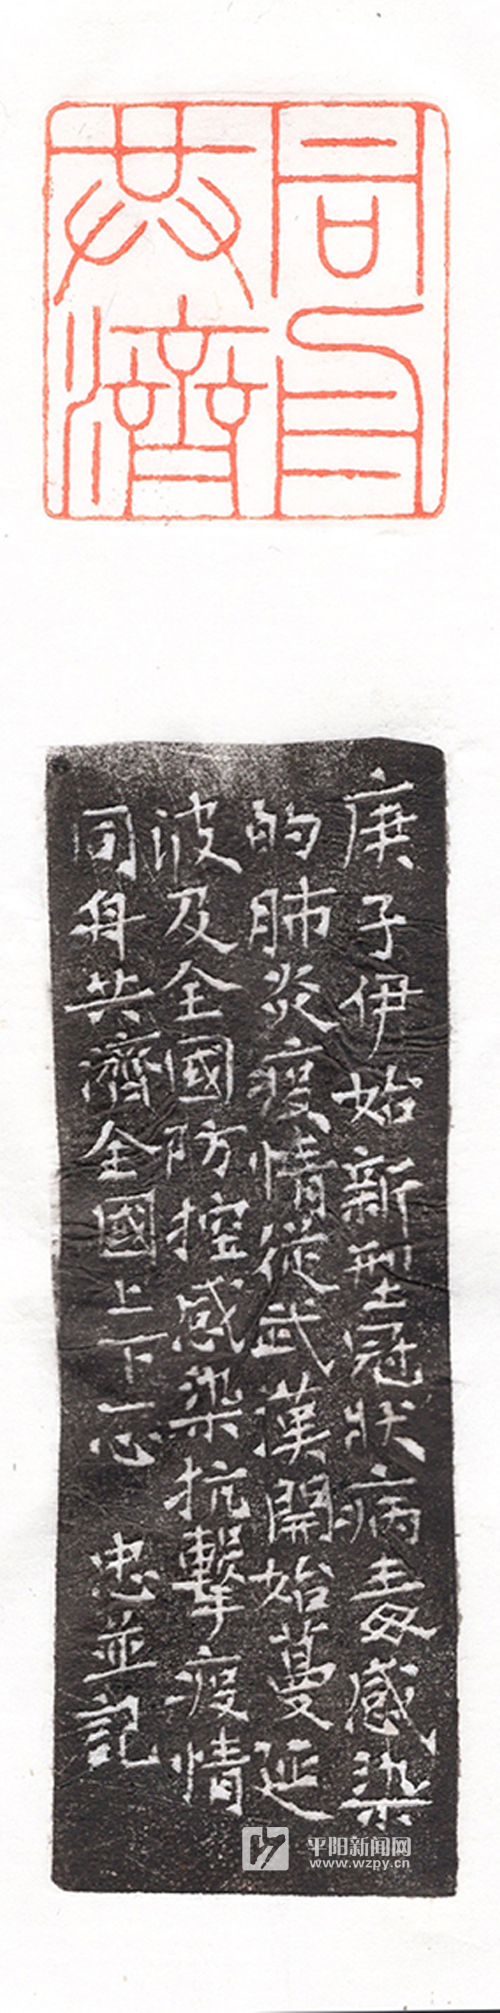 同舟
共濟
庚子伊始新型冠狀病毒感染
的肺炎疫情從武漢開始蔓延
波及全國防控感染抗擊疫情
同舟共濟全國上下一心 忠並記
平阳新闻网
www.wzpy.cn